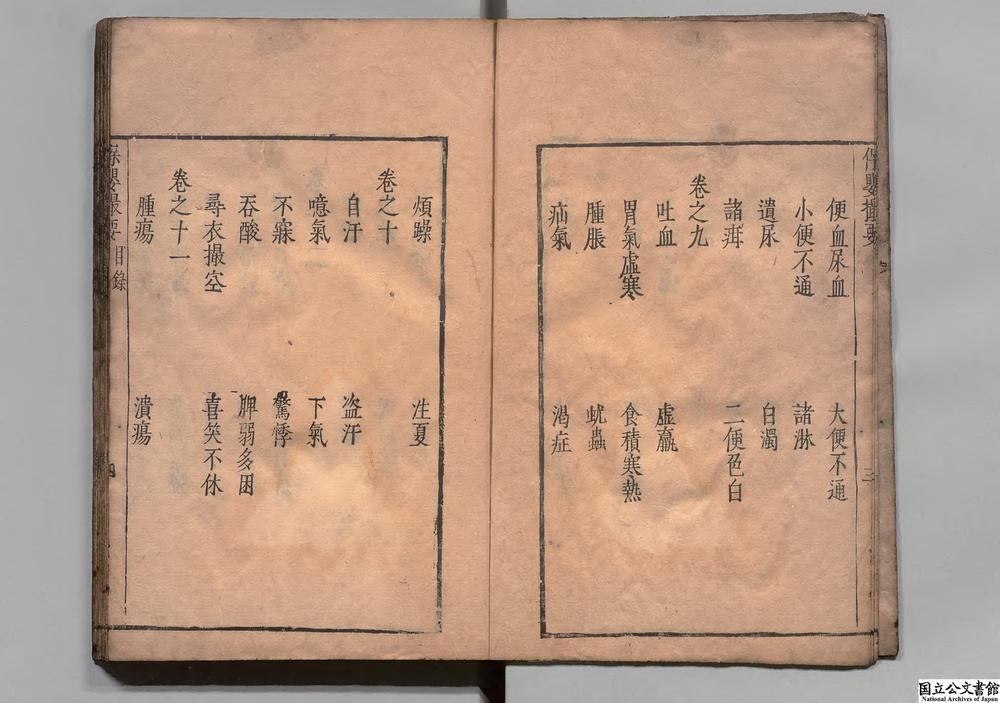 保嬰撮要
便血尿血　大便不通
小便不通　諸淋
遺尿　白濁
諸疳　二便色白
卷之九
吐血　虛羸
胃氣虛寒　食積寒熱
腫脹　蚘蟲
疝氣　渴症
煩躁　注夏
卷之十
自汗　盗汗
噫氣　下氣
不寐　驚悸
吞酸　脾弱多困
尋衣撮空　喜笑不休
卷之十一
腫瘍　潰瘍
保嬰撮要　目錄　四
国立公文書館
National Archives of Japan